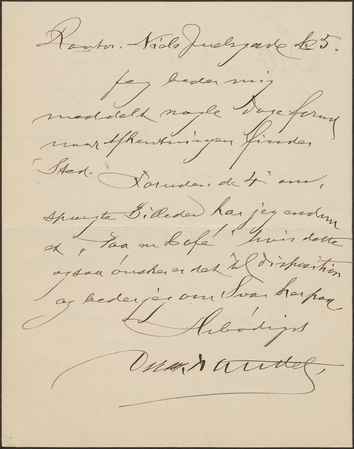 Kontor. Niels Juelsgade No 5.
Jeg beder mig
meddelt nogle Dage forud
naar Afhentningen finder
Sted. Foruden de 4 om-
spurgte Billeder har jeg endnu
et, "Paa en Café" hvis dette
ogsaa ønskes er det til Disposition
og beder jeg om Svar herpaa
Ærbødigst